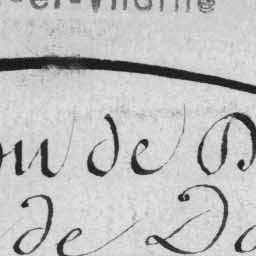 -et-Vilaine
ou de D
de Do